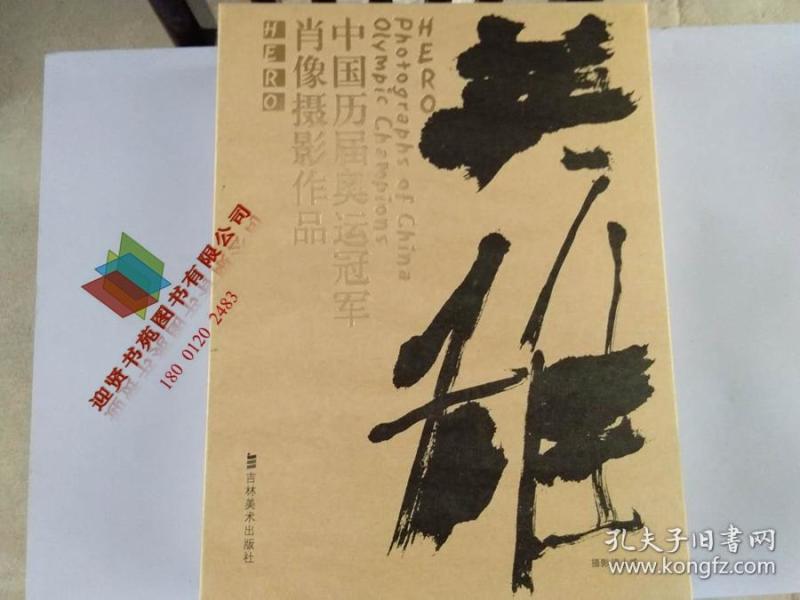 英雄
HERO
Photographs of China
Olympic Champions
中国历届奥运冠军
肖像摄影作品
HERO
吉林美术出版社
摄影
迎贤书苑图书有限公司
180 0120 2483
孔夫子旧书网
www.kongfz.com